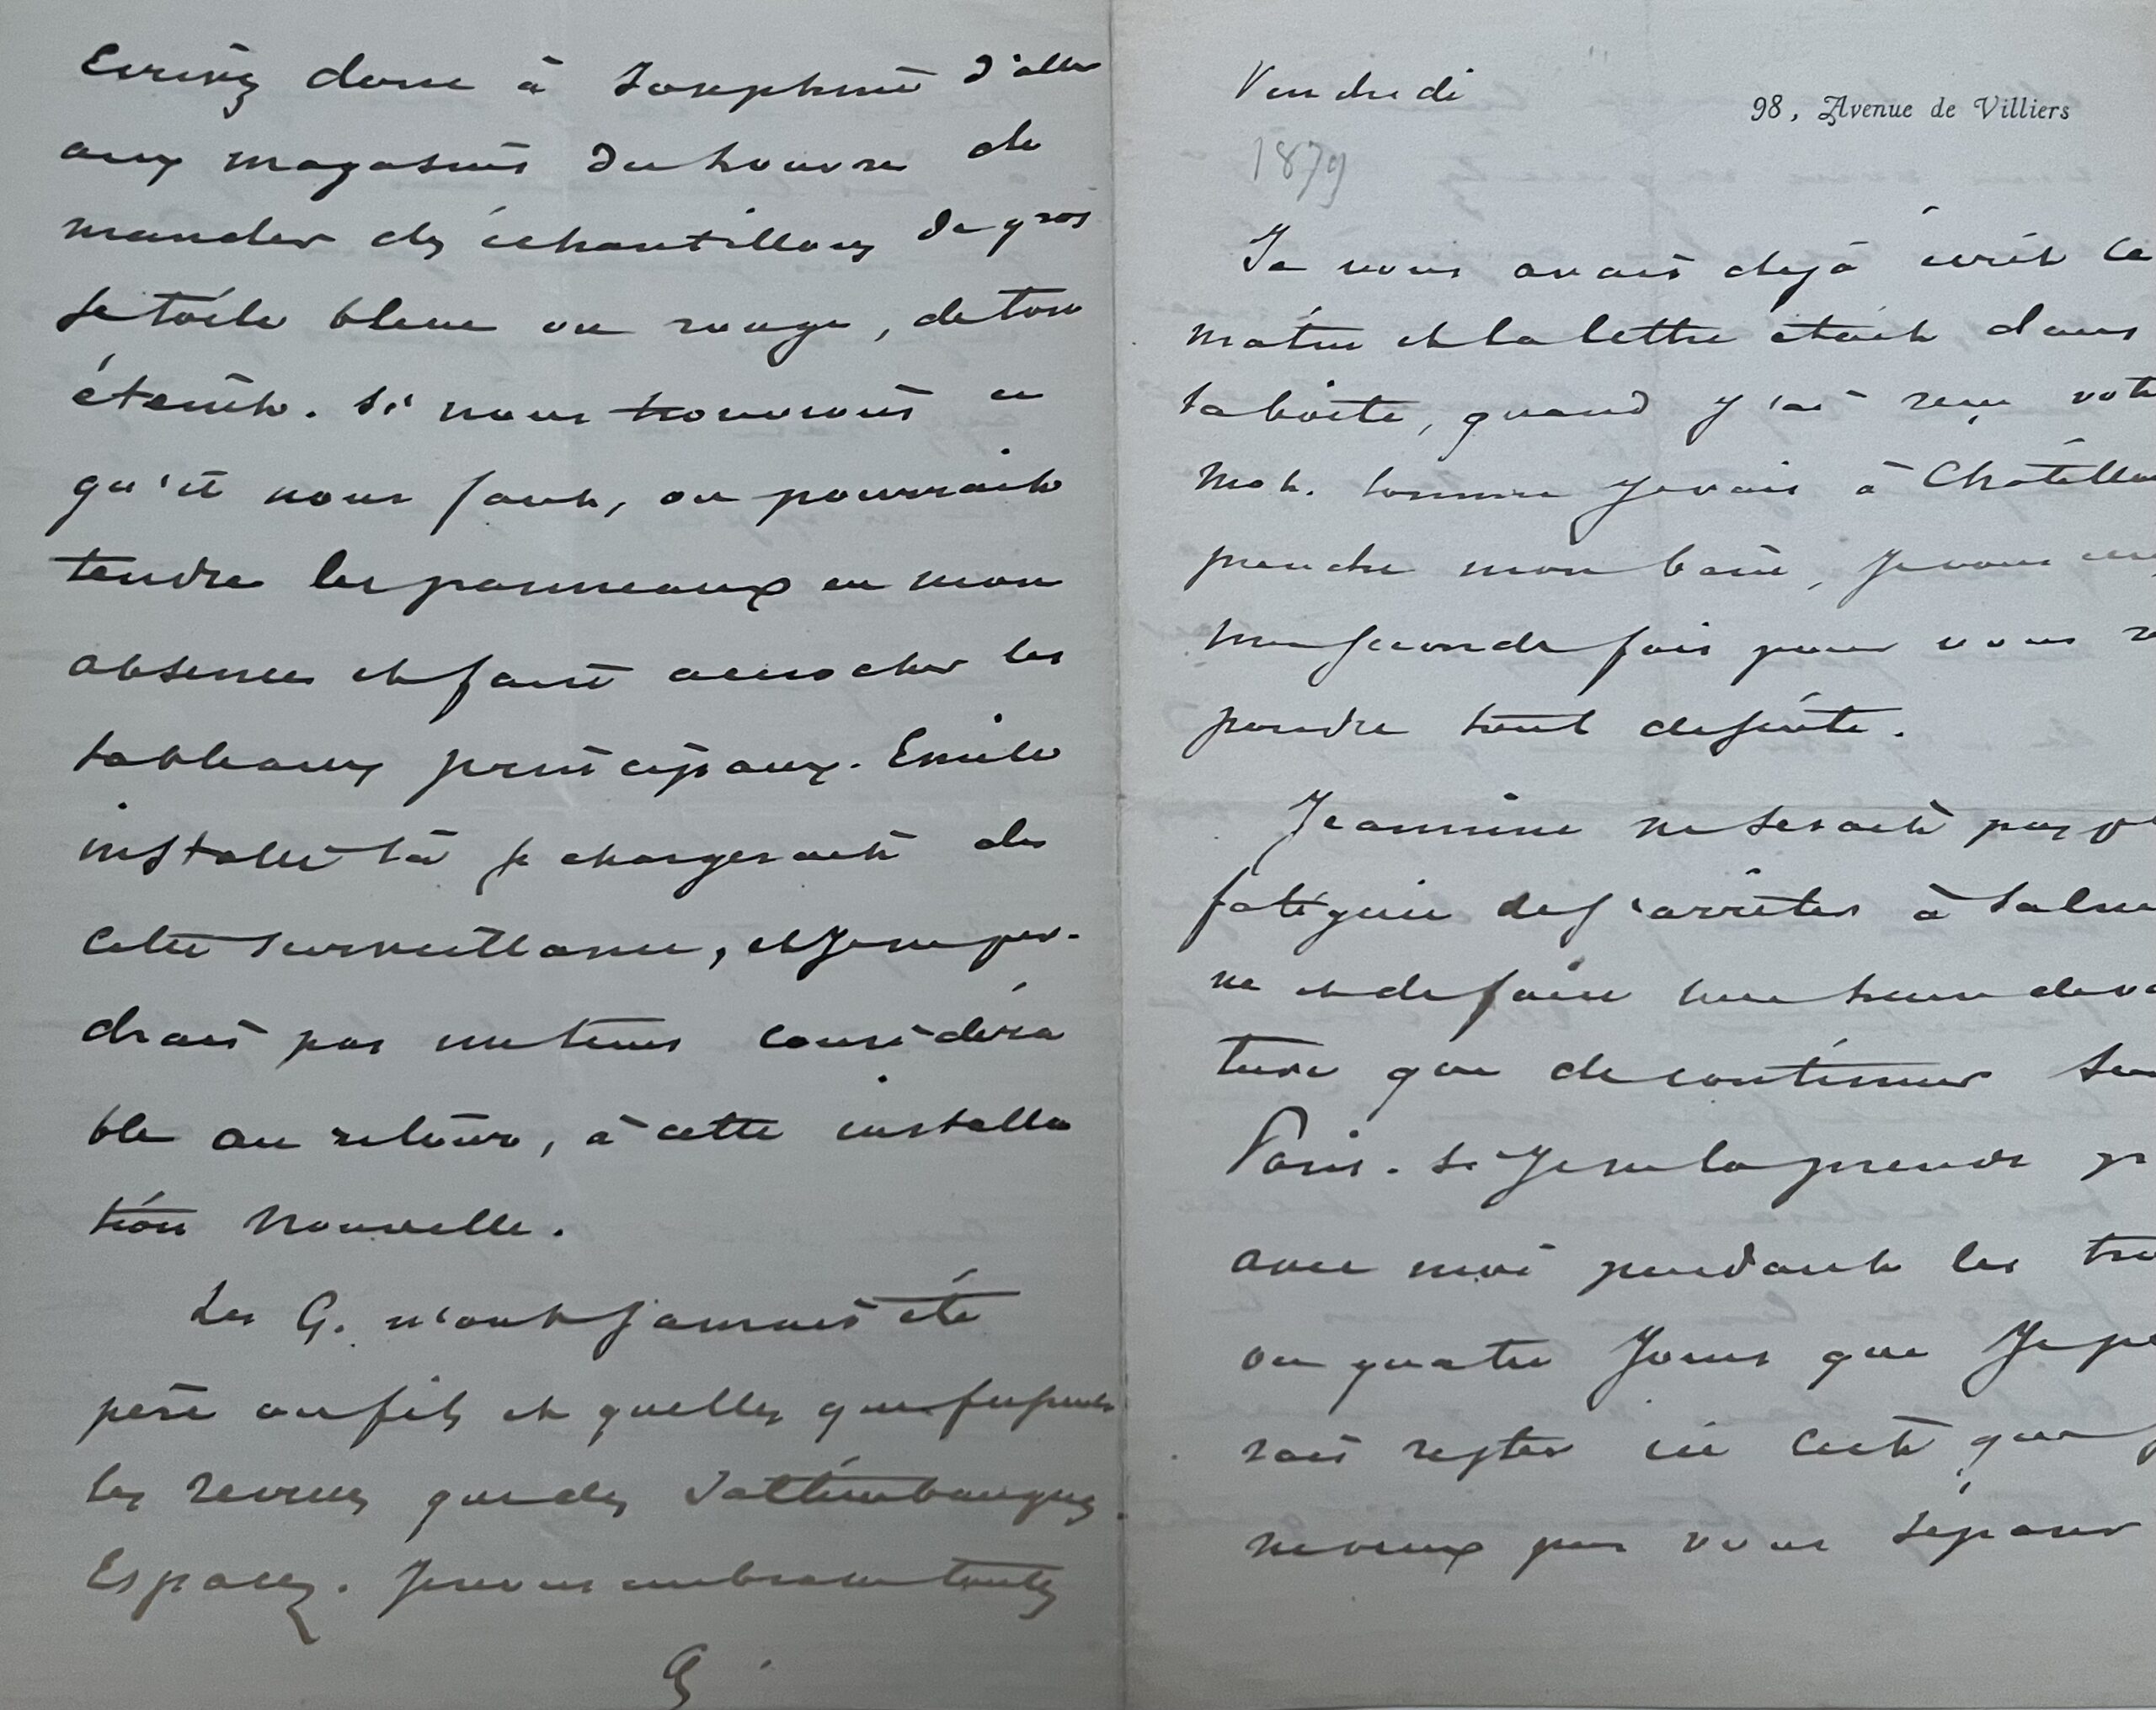 Ecrivez donc à Josephine d'aller
aux magasins du Louvre de
mander des échantillons de gros
se toile bleue ou rouge, de ton
éteint. Si nous trouvions ce
qu'il nous faut, on pourrait
tendre les panneaux en mon
absence et faire accrocher les
tableaux principaux. Emile
installé là se chargerait de
cette surveillance, et je ne per-
drais pas un temps considéra
ble au retour, à cette installa
tion nouvelle.
Les G. n'ont jamais été
père ou fils et quelles que fussent
les que des Saltimbanques
Espacez. Je vous embrasse toutes
Vendredi
98, Avenue de Villiers
1879
Je vous avais déjà écrit ce
matin et la lettre était dans
la boite, quand j'ai reçu vot
mot. Comme je vais à
prendre mon bain, je vous
une seconde fois pour vous ré
pondre tout de suite.
Jeannine ne serait pas
fatiguée de s'arrêter à
ne et de faire une heure de voi
ture que de continuer sur
Paris. Si je ne la prends
avec moi pendant les
ou quatre jours que je
rais rester ici c'est que
ne veux pas vous séparer